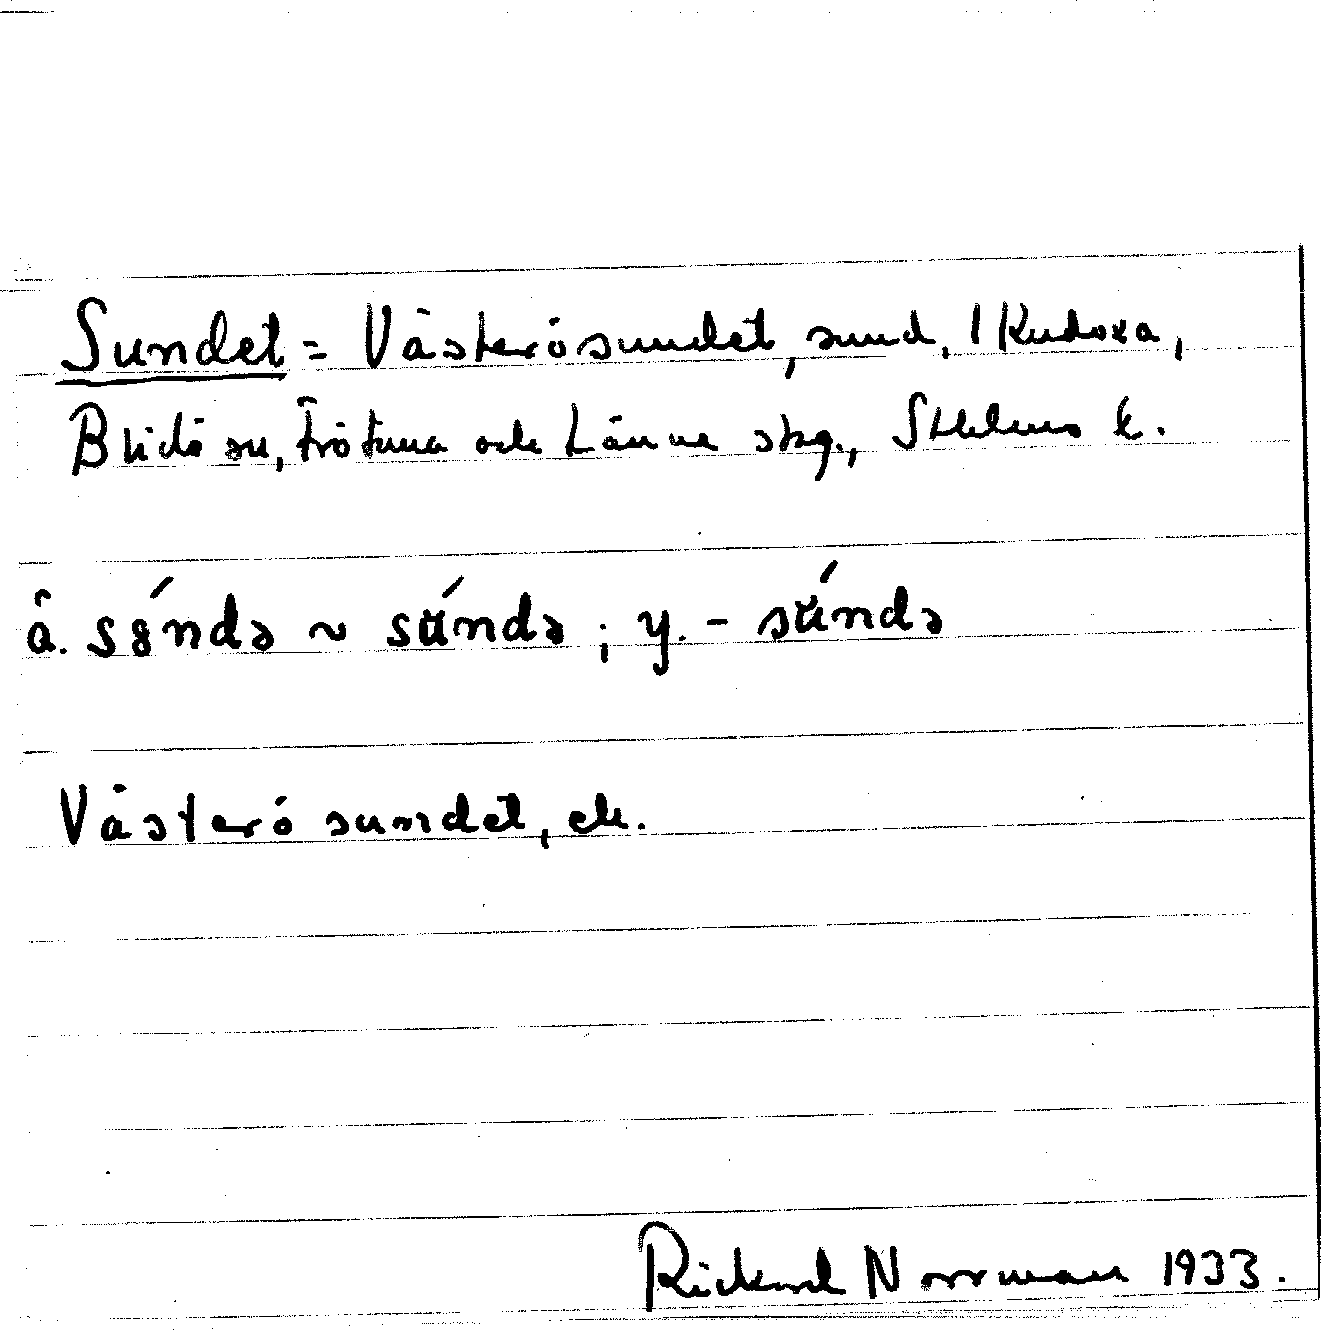 Sundet = Västerösundet, sund, 1 Kudoxa,
Blidö sn, Frötuna och Länna skg., Sthlms l.
å. sśndə ~ sʉ́ndə ; y. - sʉ́ndə
Västerö sundet, ek.
Rickard Norrman 1933.